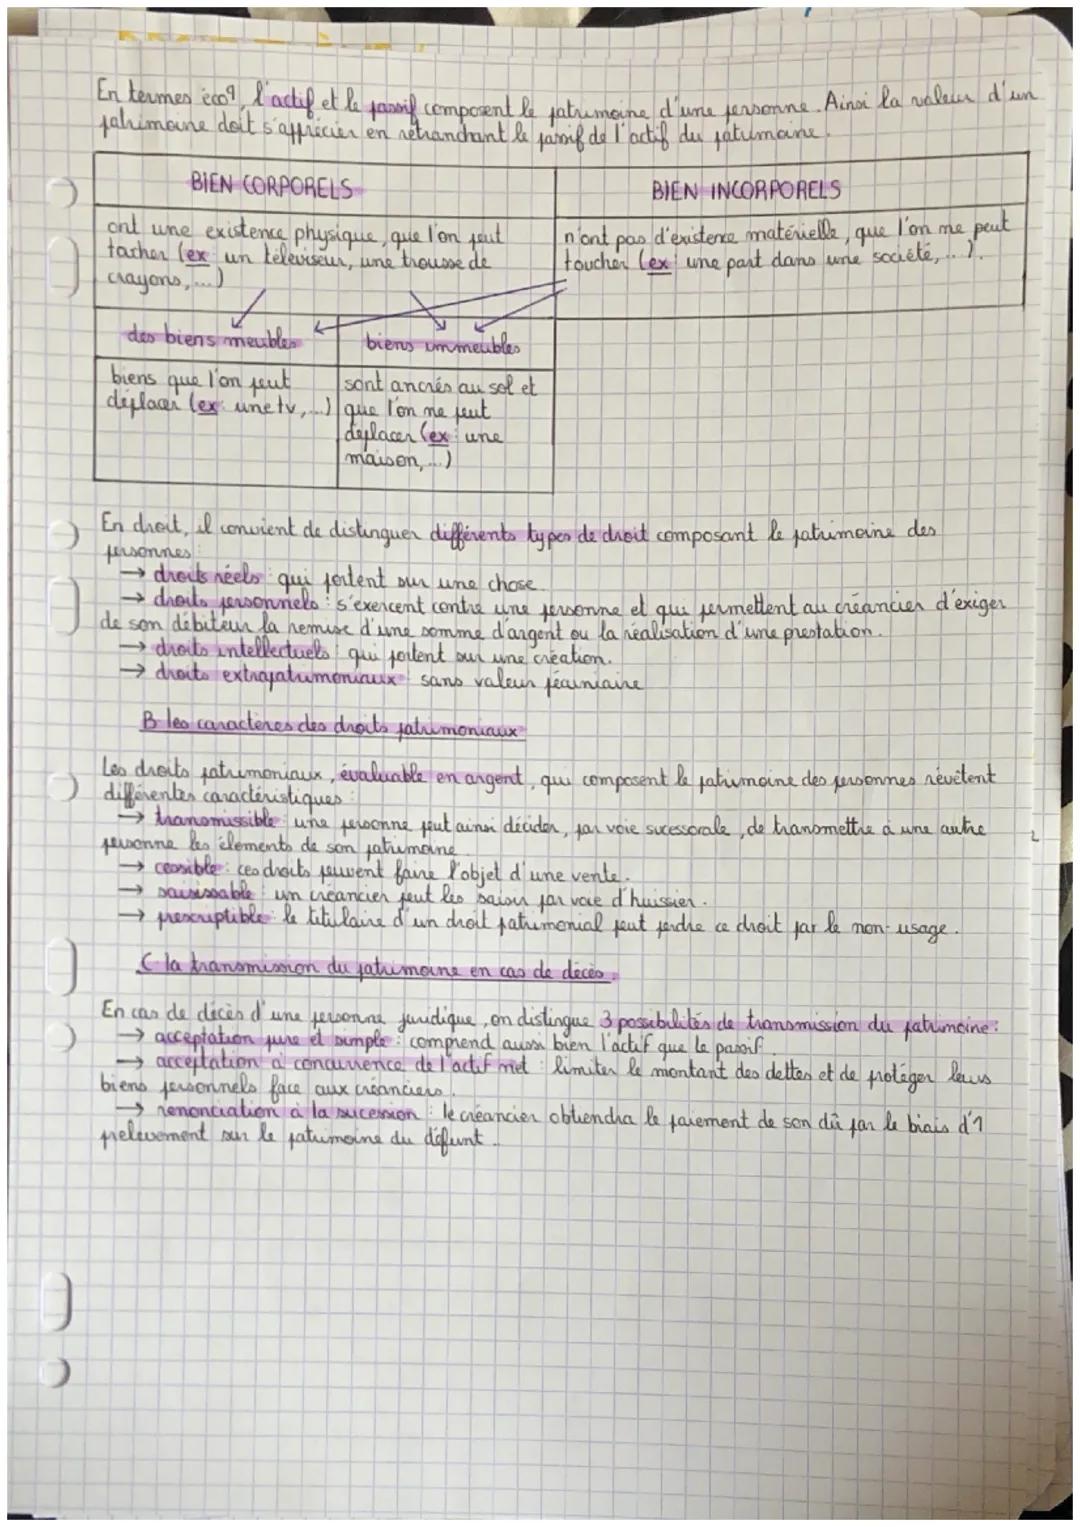 En termes éco^q, l'actif et le passif composent le patrimoine d'une personne. Ainsi la valeur d'un
patrimoine doit s'apprécier en retranchant le passif de l'actif du patrimoine.
BIEN CORPORELS
BIEN INCORPORELS
ont une existence physique, que l'on peut
tocher (ex: un téléviseur, une trousse de
crayons,...)
n'ont pas d'existence matérielle, que l'on ne peut
toucher (ex: une part dans une société,...).
des biens meubles
biens immeubles
biens que l'on peut
déplacer (ex: une tv,...)
sont ancrés au sol et
que l'on ne peut
déplacer (ex: une
maison,...)
En droit, il convient de distinguer différents types de droit composant le patrimoine des
personnes:
→ droits réels: qui portent sur une chose.
→ droits personnels: s'exercent contre une personne et qui permettent au créancier d'exiger
de son débiteur la remise d'une somme d'argent ou la réalisation d'une prestation.
→ droits intellectuels: qui portent sur une création.
→ droits extrapatrimoniaux: sans valeur pécuniaire
B les caractères des droits patrimoniaux
Les droits patrimoniaux, évaluable en argent, qui composent le patrimoine des personnes revêtent
différentes caractéristiques:
→ transmissible: une personne peut ainsi décider, par voie sucessorale, de transmettre à une autre
personne les élements de son patrimoine.
→ cessible: ces droits peuvent faire l'objet d'une vente.
→ saisissable: un créancier peut les saisir par voie d'huissier.
→ prescriptible: le titulaire d'un droit patrimonial peut perdre ce droit par le non-usage.
C la transmission du patrimoine en cas de décès.
En cas de décès d'une personne juridique, on distingue 3 possibilités de transmission du patrimoine:
→ acceptation pure et simple: comprend aussi bien l'actif que le passif.
→ acceptation à concurrence de l'actif net: limiter le montant des dettes et de protéger leurs
biens personnels face aux créanciers.
→ renonciation à la sucession: le créancier obtiendra le paiement de son dû par le biais d'1
prelevement sur le patrimoine du défunt..